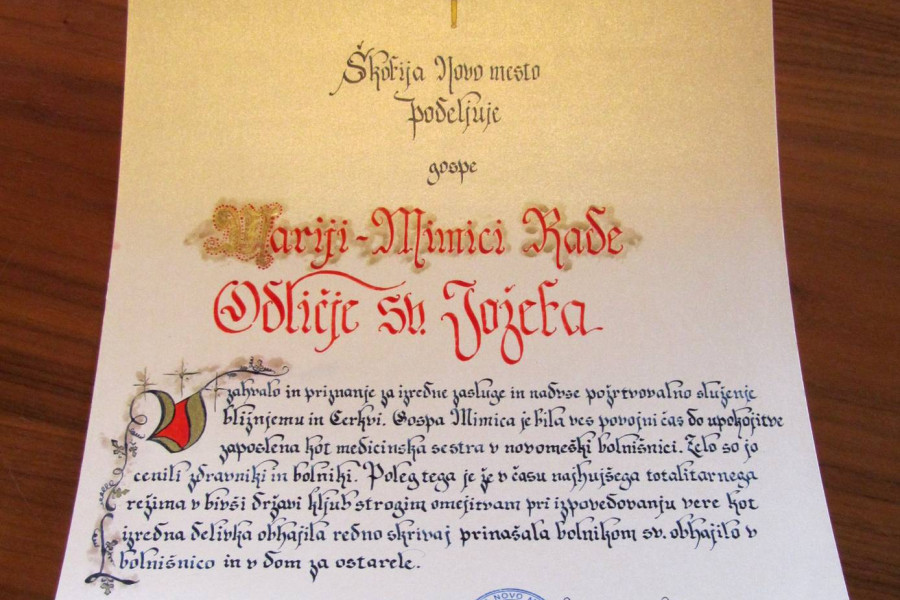 Škofija Novo mesto
Podeljuje
gospe
Mariji-Mimici Rade
Odličje sv. Jožefa
V zahvalo in priznanje za izredne zasluge in nadvse požrtvovalno služenje
bližnjemu in Cerkvi. Gospa Mimica je bila ves povojni čas do upokojitve
zaposlena kot medicinska sestra v novomeški bolnišnici. Zelo so jo
cenili zdravniki in bolniki. Poleg tega je že v času najhujšega totalitarnega
režima v bivši državi kljub strogim omejitvam pri izpovedovanju vere kot
izredna delivka obhajila redno skrivaj prinašala bolnikom sv. obhajilo v
bolnišnico in v dom za ostarele.
NOVO